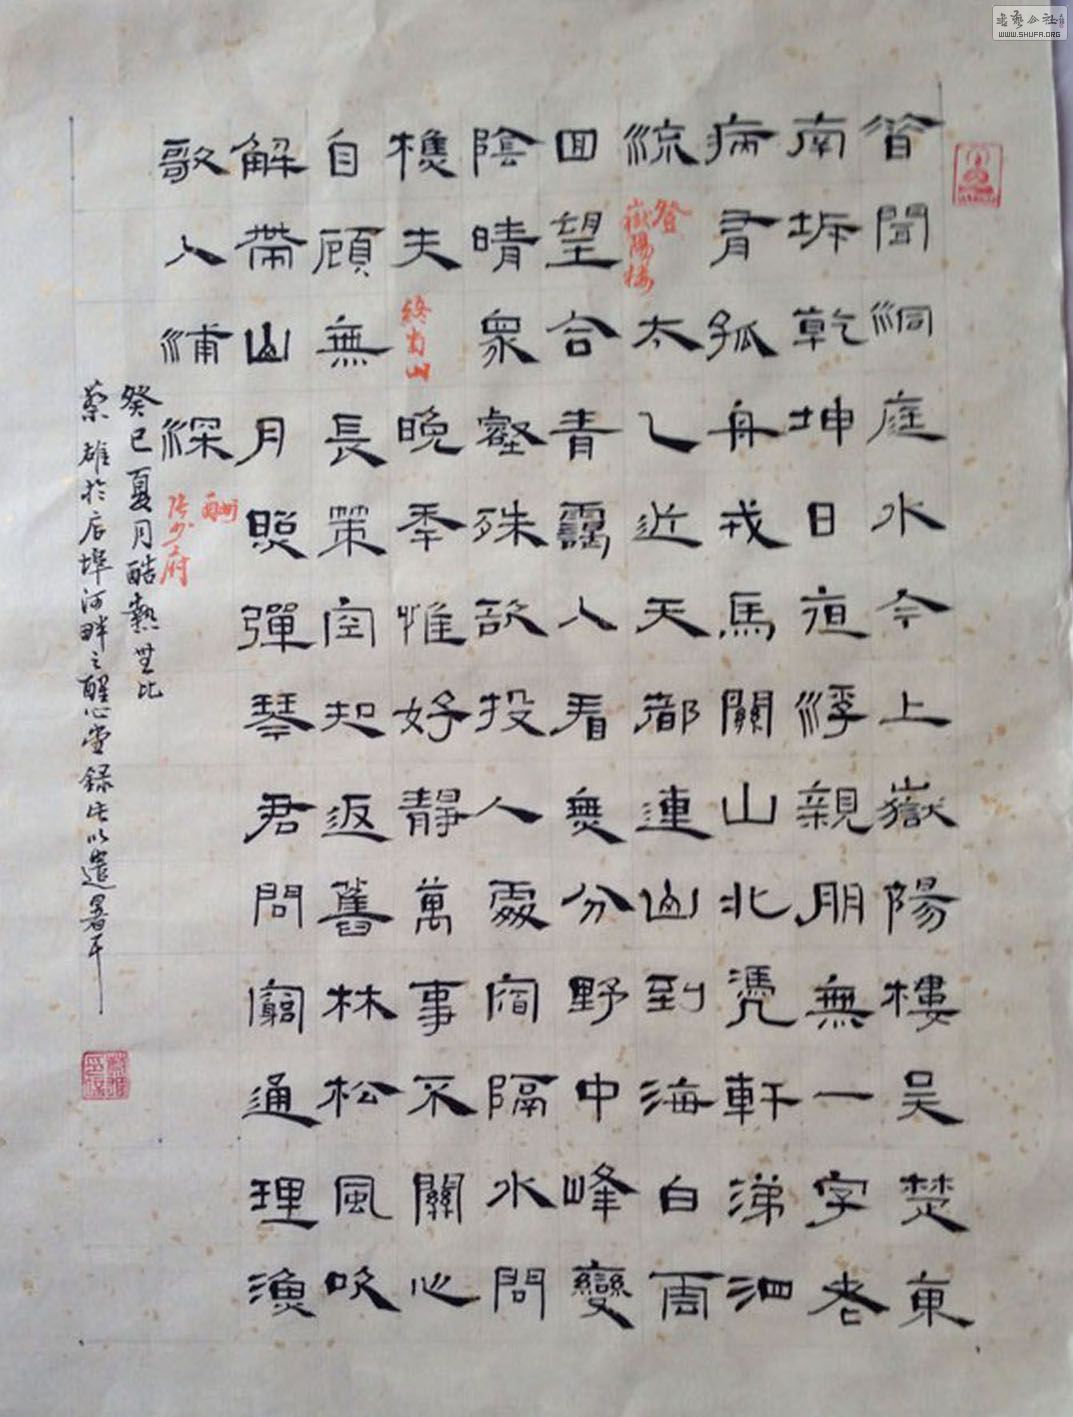 昔聞洞庭水今上嶽陽樓吳楚東
南坼乾坤日夜浮親朋無一字老
病有孤舟戎馬關山北憑軒涕泗
流 登嶽陽楼 太乙近天都連山到海白雲
回望合青靄入看無分野中峰變
陰晴衆壑殊欲投人處宿隔水問
樵夫 終南山 晚秊惟好靜萬事不關心
自顧無長策空知返舊林松風吹
解帶山月照彈琴君問窮通理漁
歌入浦深 酬张少府
癸巳夏月酷熱無比
蔡雄於店埠河畔之醒心堂録此以遣暑耳
WWW.SHUFA.ORG